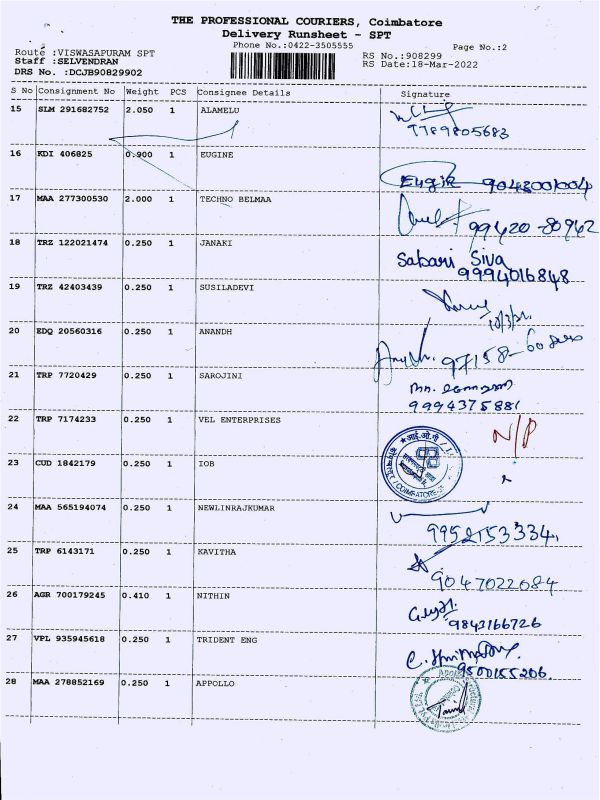 THE PROFESSIONAL COURIERS, Coimbatore
Delivery Runsheet - SPT
Phone No.:0422-3505555
Page No.:2
Route :VISWASAPURAM SPT
RS No.:908299
Staff :SELVENDRAN
RS Date:18-Mar-2022
DRS No. :DCJB90829902
S No Consignment No Weight PCS Consignee Details Signature
15 SLM 291682752 2.050 1 ALAMELU
16 KDI 406825 0.900 1 EUGINE
9043001004
17 MAA 277300530 2.000 1 TECHNO BELMAA
99420-80962
18 TRZ 122021474 0.250 1 JANAKI
Sabari Siva
9994016848
19 TRZ 42403439 0.250 1 SUSILADEVI
20 EDQ 20560316 0.250 1 ANANDH
97158-60
21 TRP 7720429 0.250 1 SAROJINI
9994375881
22 TRP 7174233 0.250 1 VEL ENTERPRISES
N/P
23 CUD 1842179 0.250 1 IOB
COIMBATORE
24 MAA 565194074 0.250 1 NEWLINRAJKUMAR
9952153334
25 TRP 6143171 0.250 1 KAVITHA
9047022084
26 AGR 700179245 0.410 1 NITHIN
9843166726
27 VPL 935945618 0.250 1 TRIDENT ENG
9500155206
28 MAA 278852169 0.250 1 APPOLLO